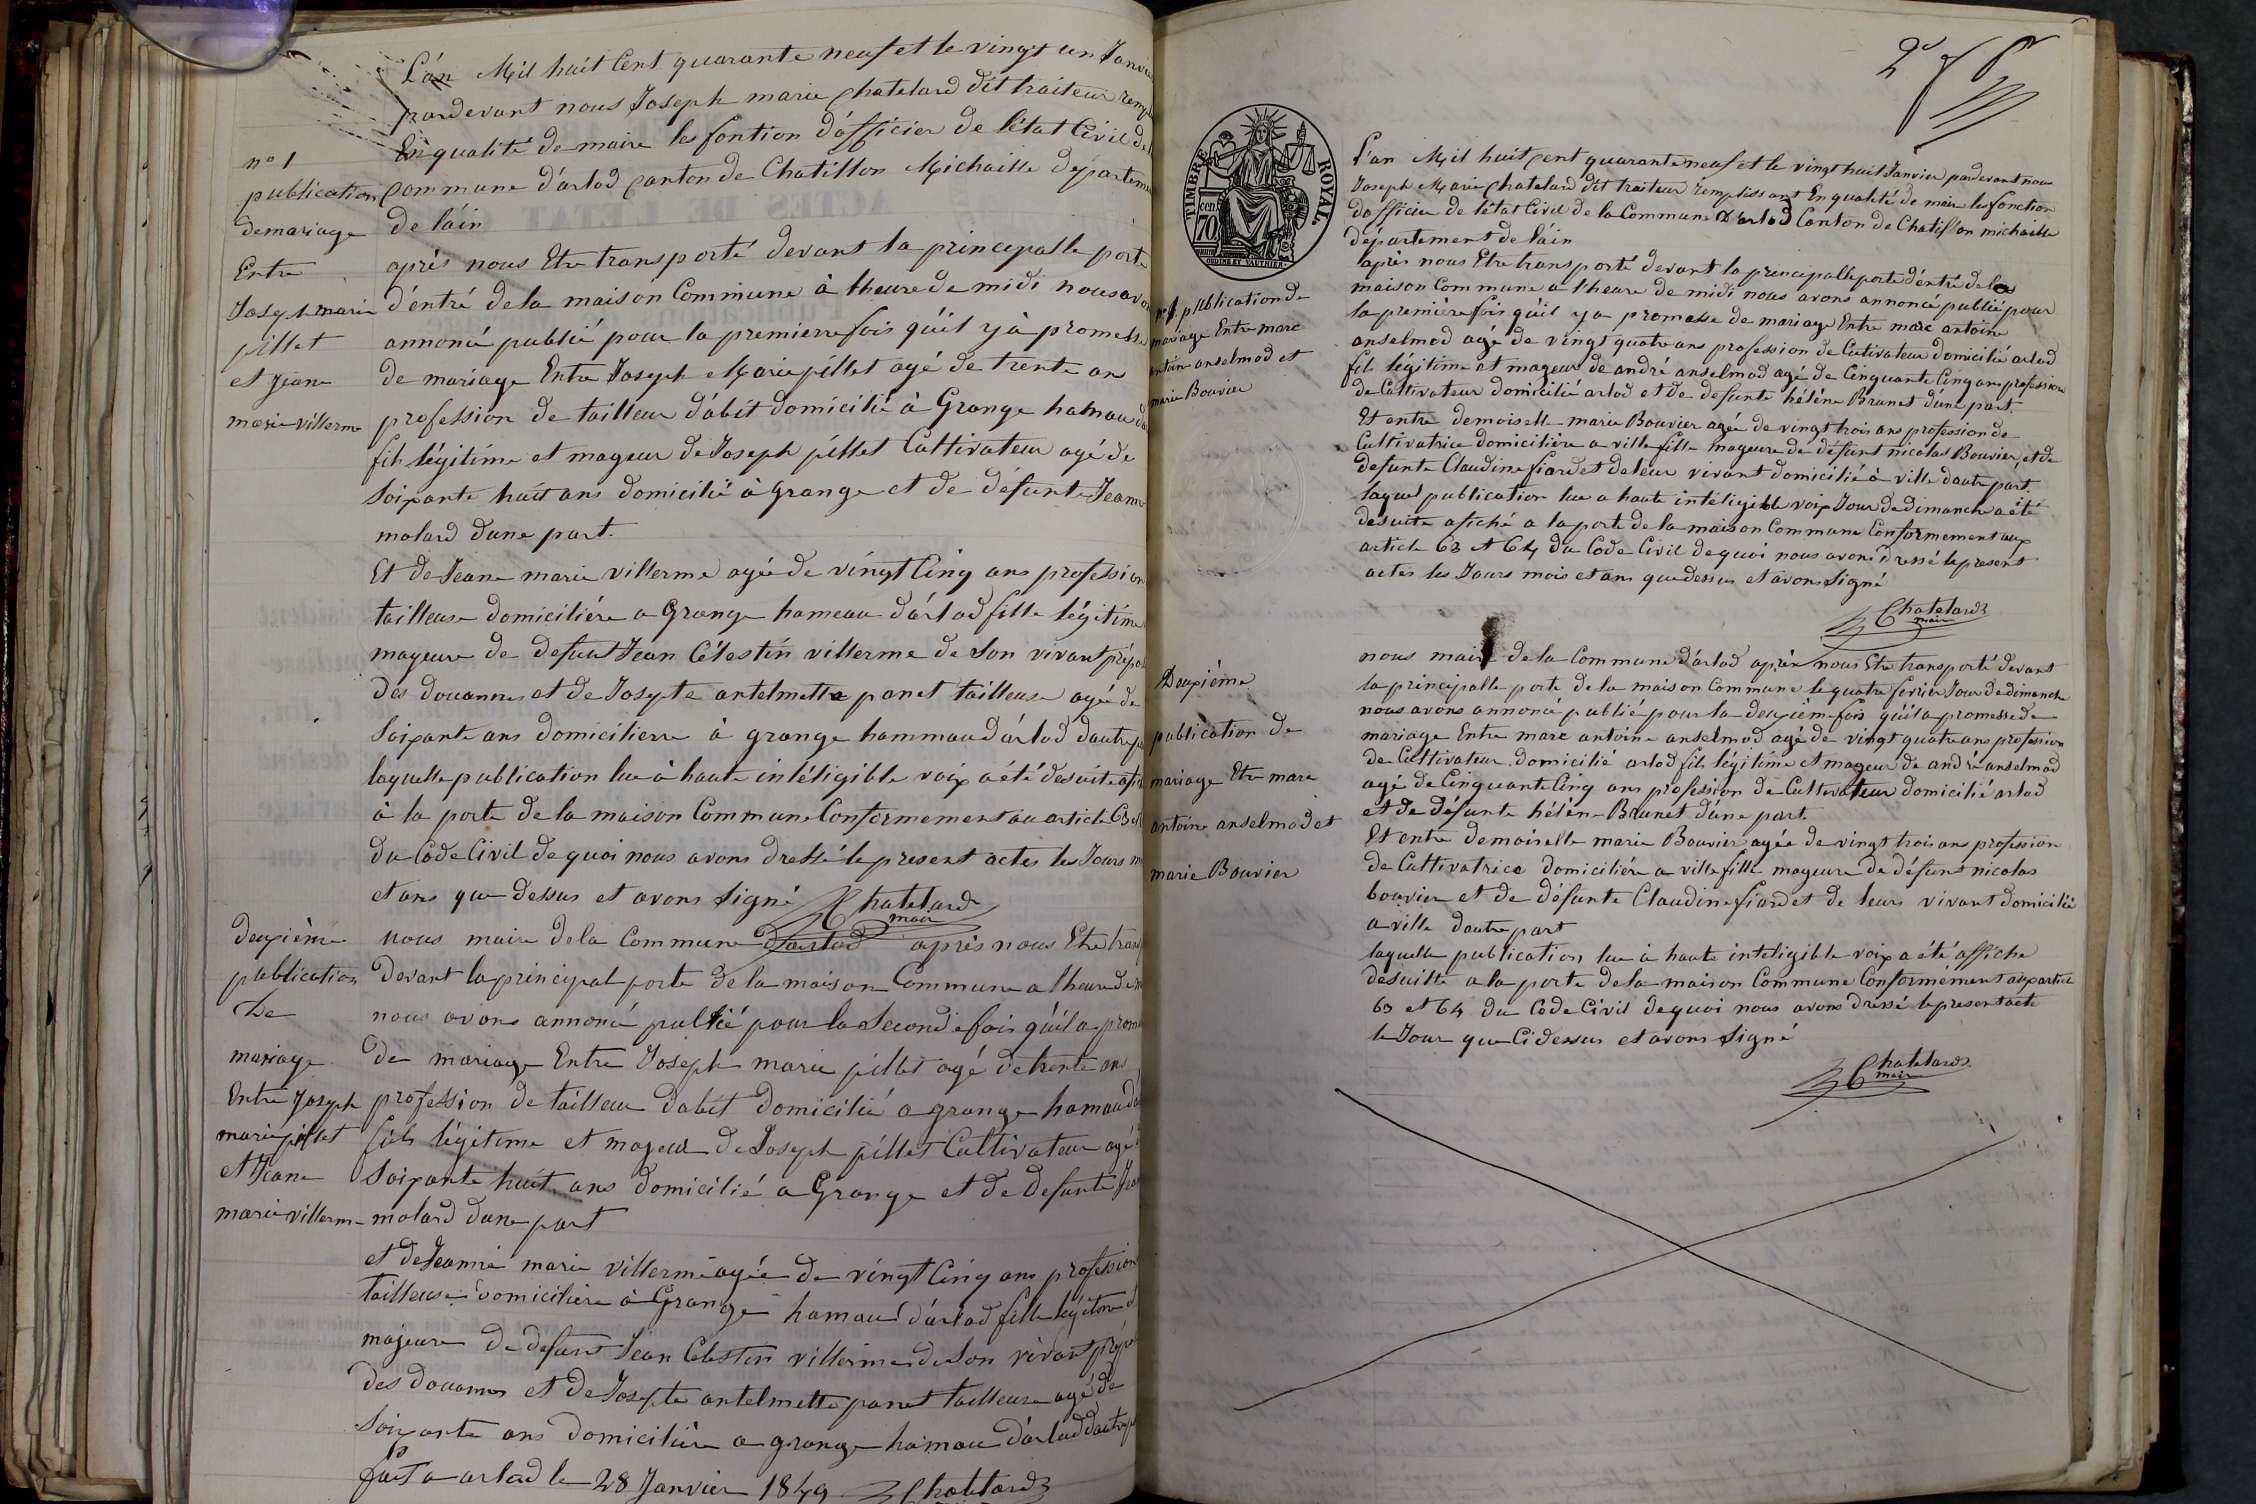 L'án Mil huit Cent quarante neuf et le vingt un Janvi
pardevant nous Joseph marie Chatelard dit traiteur remp
En qualité de maire les fontion d'officier de l'état Civil de
n° 1
publication
de mariage
Entre
Joseph marie
pillet
et Jeane
marie villerme
Commune d'arlod Canton de Chatillon Michaille départeme
de láin
après nous Etre transporté devant la principalle porte
d'éntré de la maison Commune à lheure de midi nous avon
annoncé publié pour la premierre fois qúil y à promesse
de mariage Entre Joseph Marie pillet agé de trente ans
profession de tailleur d'abit domicilié à Grange hamau da
fils légitime et mageur de Joseph pillet Cultivateur agé de
Soixante huit ans domicilié à Grange et de défunte Jeanne
molard dune part.
Et de Jeane marie villerme agée de vingt Cinq ans profession
tailleuse domiciliére a Grange hameau d'árlod fille légitime
mageure de defunt Jean Célestin villerme de Son vivant prépo
des douannes et de Josepte antelmette panet tailleuse agé de
Soixante ans domicilierre à grange hammau d'árlod dautre p
laquelle publication lue à haute inteligible voix a été desuite afi
à la porte de la maison Commune Conformement au article 63 et
du Code Civil de quoi nous avons dressé le present actes les Jours m
et ans que dessus et avons Signé Chatelard
mair
deuxième
publication
De
mariage
Entre Joseph
marie pillet
et Jeane
marie villerme
nous maire de la Commune d'arlod après nous Etre trans
devant la principal porte de la maison Commune a lheure de m
nous avons annoncé publié pour la Seconde fois qúil a prom
de mariage Entre Joseph marie pillet agé de trente ans
profession de tailleur dabit domicilié a grange hamau da
fils légitime et majeur de Joseph pillet Cultivateur agé d
Soixante huit ans domicilié a Grange et de defunte Jea
molard dune part
et de Jeanne marie villerme agée de vingt Cinq ans profession
tailleuse domiciliére à Grange hamau d'árlod fille légitime et
majeure de defunt Jean Celestin villerme de Son vivant prépo
des douannes et de Josepte antelmette panet tailleuse agé de
Soixante ans domicilière a grange hamau d'árlod dautre p
fait a arlod le 28 Janvier 1849 Chatelard
2e
TIMBRE ROYAL
cen. 70
OUDINE ET VAUTHIER
n° 1 publication de
mariage Entre marc
antoine anselmod et
marie Bouvier
L'an Mil huit Cent quarante neuf et le vingt huit Janvier pardevant nous
Joseph Marie Chatelard dit traiteur remplissant En qualité de maire les fonction
d'officier de l'état Civil de la Commune D'arlod Canton de Chatillon michaille
département de láin
après nous Etre transporté devant la principalle porte d'éntré de la
maison Commune a l'heure de midi nous avons annoncé publié pour
la première fois qúil y a promesse de mariage Entre marc antoine
anselmod agé de vingt quatre ans profession de Cultivateur domicilié arlod
fils légitime et mageur de andré anselmod agé de Cinquante Cinq ans profession
de Cultivateur domicilié arlod et de defunte hélène Brunet d'úne part.
Et entre demoiselle marie Bouvier agée de vingt trois ans profession de
Cultivatrice domicilière a ville fille mageure de défunt nicolas Bouvier, et de
defunte Claudine fiard et de leur vivant domicilié à ville dautre part
laquel publication lue a haute intéligible voix Jour de dimanche a été
desuite afiché a la porte de la maison Commune Conformement aux
article 63 et 64 du Code Civil de quoi nous avons dressé le present
actes les Jours mois et ans que dessus et avons Signé
Chatelard
mair
Deuxième
publication de
mariage Etre marc
antoine anselmod et
marie Bouvier
nous maire de la Commune d'árlod après nous Etre transporté devant
la principalle porte de la maison Commune le quatre fevrier Jour de dimanche
nous avons annoncé publié pour la deuxième fois qúil a promesse de
mariage Entre marc antoine anselmod agé de vingt quatre ans profession
de Cultivateur domicilié arlod fils légitime et mageur de andré anselmod
agé de Cinquante Cinq ans profession de Cultivateur domicilié arlod
et de défunte hélène Brunet d'úne part.
Et entre demoiselle marie Bouvier agée de vingt trois ans profession
de Cultivatrice domiciliére a ville fille mageure de défunt nicolas
bouvier et de défunte Claudine fiard et de leurs vivant domicilié
a ville dautre part
laquelle publication lue à haute inteligible voix a été affiche
desuitte a la porte de la maison Commune Conformément aux article
63 et 64 du Code Civil de quoi nous avons dressé le present acte
le Jour que Ci dessus et avons Signé
Chatelard
mair